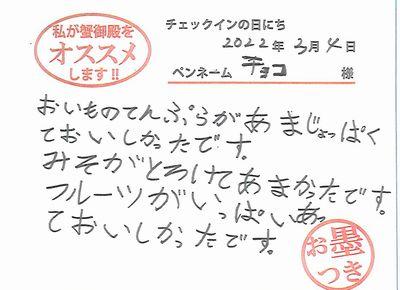 私が蟹御殿を
オススメ
します!!
チェックインの日にち
2022年 3月 4日
ペンネーム チョコ 様
おいものてんぷらがあまじょっぱく
ておいしかったです。
みそがとろけてあまかったです。
フルーツがいっぱいあっ
ておいしかったです。
お墨
つき